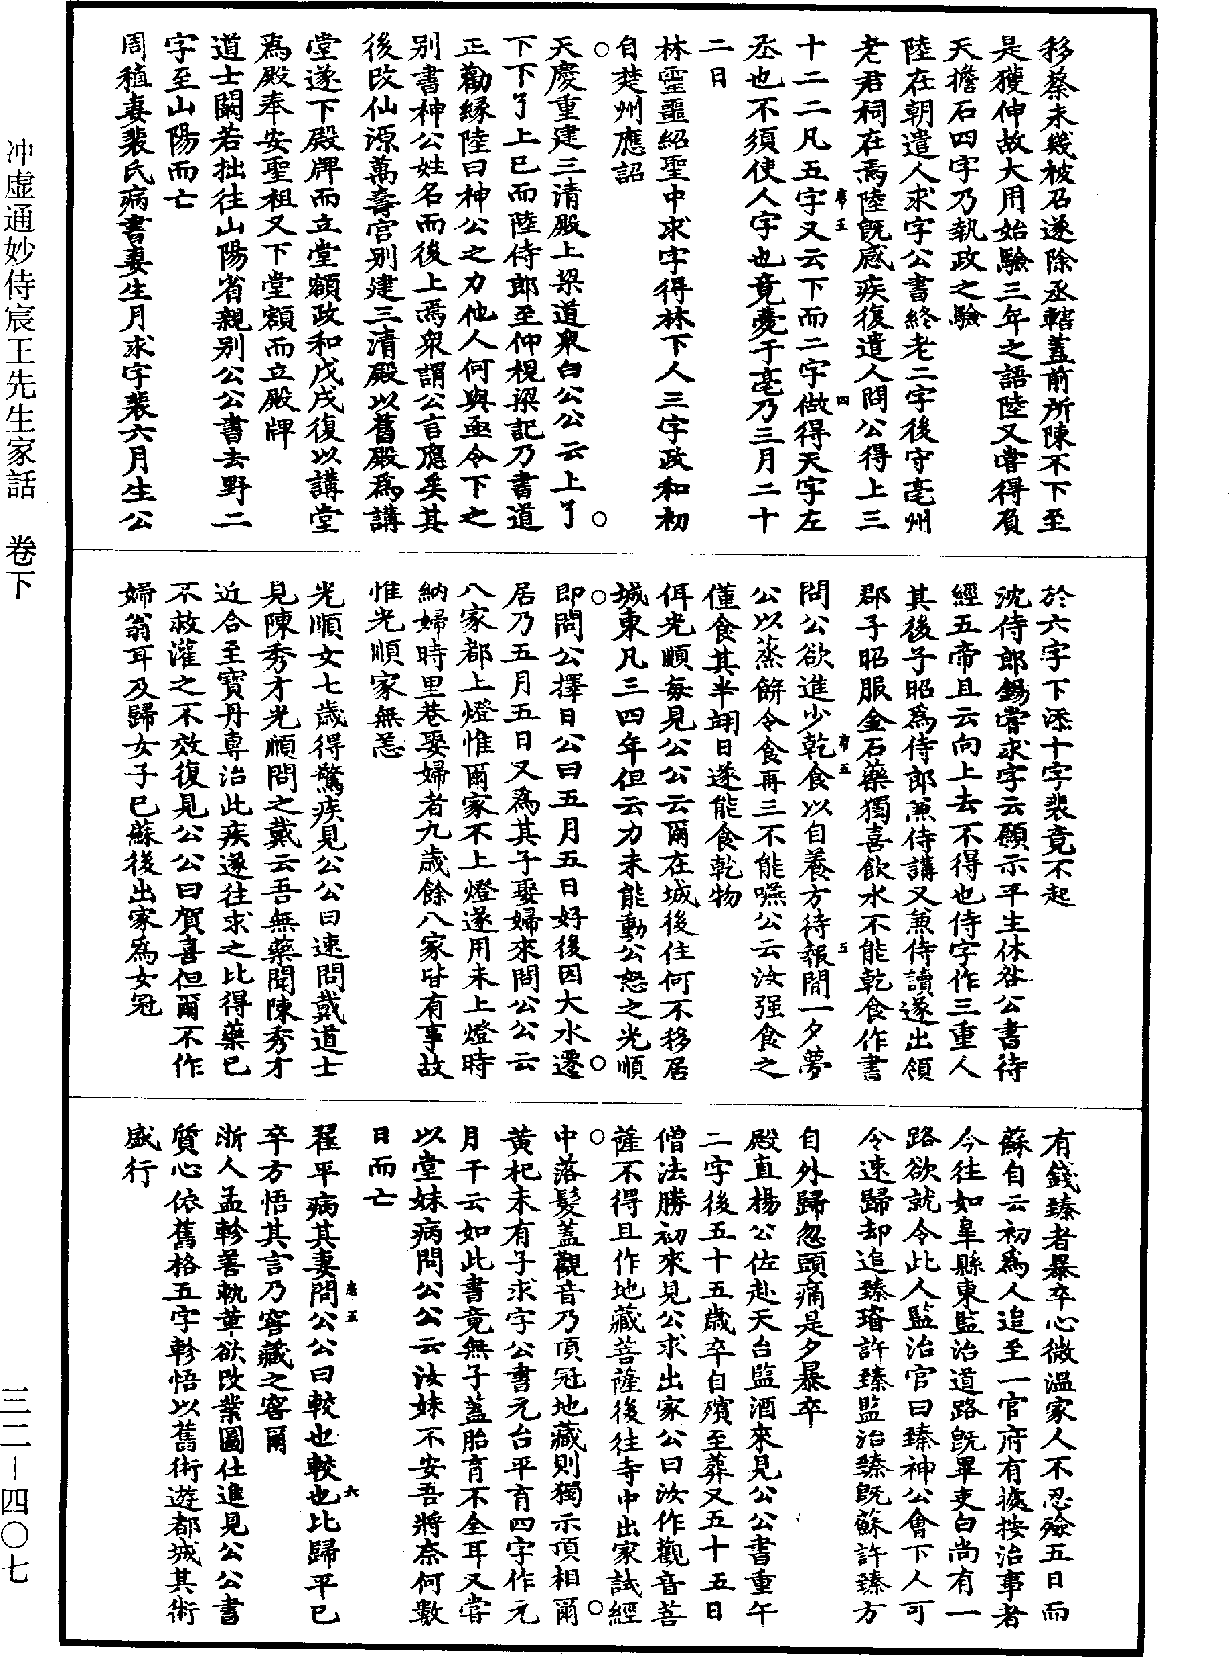 移蔡未幾被召遂除丞轄蓋前所陳不下至
是獲伸故大用始驗三年之語陸又嘗得負
天擔石四字乃執政之驗
陸在朝遣人求字公書終老二字後守亳州
老君祠在焉陸既感疾復遣人問公得上三
十二二凡五字又云下而二字做得天字左
丞也不須使人字也竟薨于亳乃三月二十
二日
林靈噩紹聖中求字得林下人三字政和初
自楚州應詔
天慶重建三清殿上梁道衆白公公云上了
下下了上已而陸侍郎至仲梘梁記乃書道
正勸緣陸曰神公之力他人何與亟令下之
別書神公姓名而後上焉衆謂公言應矣其
後改仙源萬壽宮別建三清殿以舊殿爲講
堂遂下殿牌而立堂額政和戊戌復以講堂
爲殿奉安聖祖又下堂額而立殿牌
道士闕若拙往山陽省親別公公書去野二
字至山陽而亡
周積妻裴氏病書妻生月求字裴六月生公
於六字下添十字裴竟不起
沈侍郎錫嘗求字云願示平生休咎公書待
經五帝且云向上去不得也侍字作三重人
其後子昭爲侍郎兼侍講又兼侍讀遂出領
郡子昭服金石藥獨喜飲水不能乾食作書
問公欲進少乾食以自養方待報間一夕夢
公以蒸餅令食再三不能嚥公云汝强食之
僅食其半翊日遂能食乾物
佴光順每見公公云爾在城後住何不移居
城東凡三四年但云力未能動公怒之光順
即問公擇日公曰五月五日好後因大水遷
居乃五月五日又爲其子娶婦來問公公云
八家都上燈惟爾家不上燈遂用未上燈時
納婦時里巷娶婦者九歲餘八家皆有事故
惟光順家無恙
光順女七歲得驚疾見公公曰速問戴道士
見陳秀才光順問之戴云吾無藥聞陳秀才
近合至寶丹專治此疾遂往求之比得藥已
不救灌之不效復見公公曰賀喜但爾不作
婦翁耳及歸女子已蘇後出家爲女冠
有錢臻者暴卒心微溫家人不忍殮五日而
蘇自云初爲人追至一官府有據按治事者
今往如臯縣東監治道路既畢吏白尚有一
路欲就令此人監治官曰臻神公會下人可
令速歸却追臻壻許臻監治臻既蘇許臻方
自外歸忽頭痛是夕暴卒
殿直楊公佐赴天台監酒來見公公書重午
二字後五十五歲卒自殯至葬又五十五日
僧法勝初來見公求出家公曰汝作觀音菩
薩不得且作地藏菩薩後往寺中出家試經
中落髮蓋觀音乃頂冠地藏則獨示頂相爾
黃杞未有子求字公書元台平育四字作元
月千云如此書竟無子蓋胎育不全耳又嘗
以堂妹病問公公云汝妹不安吾將奈何數
日而亡
翟平病其妻問公公曰較也較也比歸平已
卒方悟其言乃窖藏之窖爾
浙人孟軫善執葷欲改業圖仕進見公公書
質心依舊格五字軫悟以舊術遊都城其術
盛行
冲虛通妙侍宸王先生家話　卷下
三二—四〇七